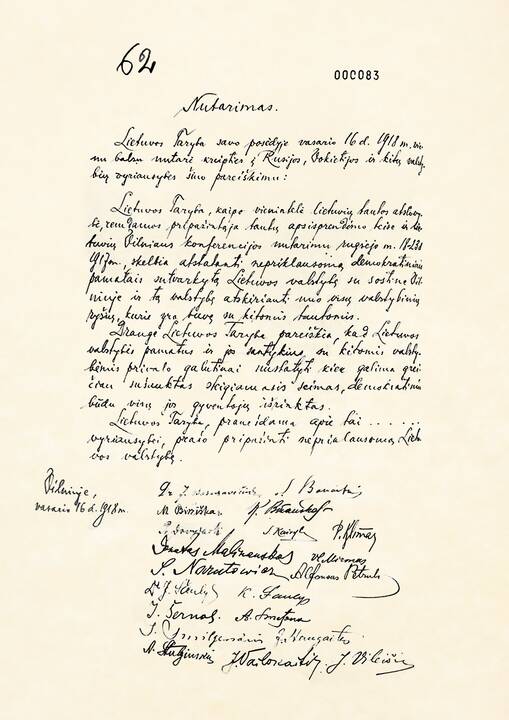 62
000083
Nutarimas.
Lietuvos Taryba savo posėdyje vasario 16 d. 1918 m. vie-
nu balsu nutarė kreiptis į Rusijos, Vokietijos ir kitų valsty-
bių vyriausybes šiuo pareiškimu:
Lietuvos Taryba, kaipo vienintelė lietuvių tautos atstovy-
bė, remdamos pripažintąja tautų apsisprendimo teise ir lie-
tuvių Vilniaus konferencijos nutarimu rugsėjo m. 18-23 d
1917 m., skelbia atstatanti nepriklausomą, demokratiniais
pamatais sutvarkytą Lietuvos valstybę su sostine Vil-
niuje ir tą valstybę atskirianti nuo visų valstybinių
ryšių, kurie yra buvę su kitomis tautomis.
Drauge Lietuvos Taryba pareiškia, kad Lietuvos
valstybės pamatus ir jos santykius su kitomis valsty-
bėmis privalo galutinai nustatyti kiek galima grei-
čiau sušauktas steigiamasis seimas, demokratiniu
būdu visų jos gyventojų išrinktas.
Lietuvos Taryba, pranešdama apie tai . . . . . .
vyriausybei, prašo pripažinti nepriklausomą Lietu-
vos valstybę.
Vilniuje,
vasario 16 d. 1918 m.
Dr J. Basanavičius S. Banaitis
M. Biržiška K. Bizauskas
S. Kairys P. Klimas
Donatas Malinauskas Vl. Mironas
S. Narutowicz Alfonsas Petrulis
Dr J. Šaulys K. Šaulys
J. Šernas A. Smetona
J. Smilgevičius J. Staugaitis
A. Stulginskis J. Vailokaitis J. Vileišis